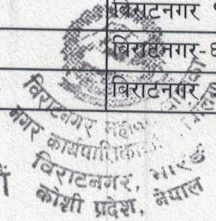 बिराटनगर
बिराटनगर- ६
बिराटनगर
बिराटनगर
नगर कार्यपालिका
बिराटनगर, मोरङ
कोशी प्रदेश, नेपाल